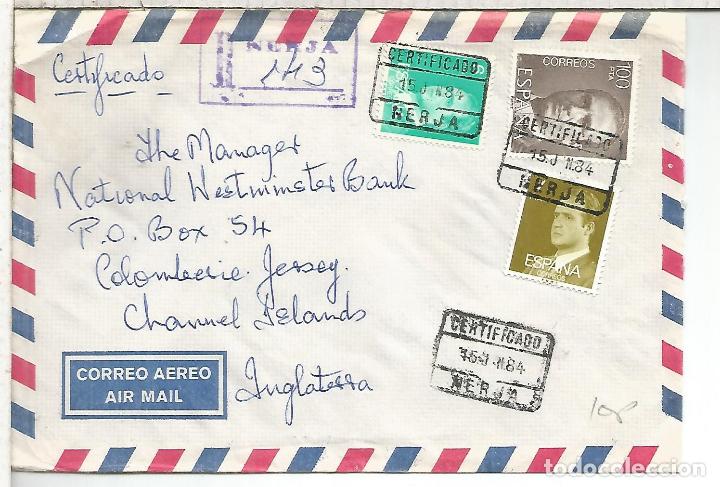 Certificado
NERJA
143
CERTIFICADO
15 J N 84
NERJA
CORREOS
100
PTA
ESPAÑA
CERTIFICADO
15 J N 84
NERJA
ESPAÑA
CORREOS
The Manager
National Westminster Bank
P.O. Box 54
Colomberie Jersey.
Channel Islands
Inglaterra
CORREO AEREO
AIR MAIL
CERTIFICADO
15 J N 84
NERJA
todocoleccion.net